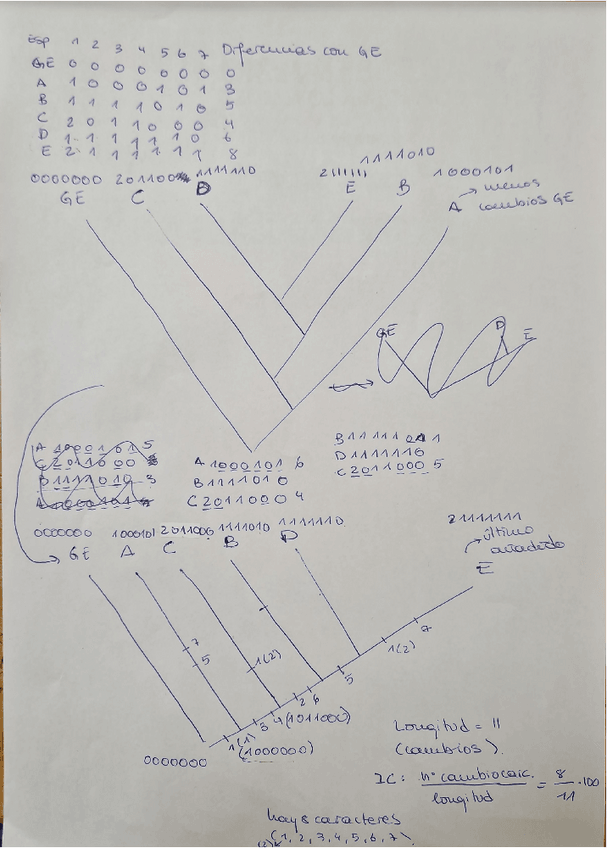 Esp 1 2 3 4 5 6 7 Diferencias con GE
GE 0 0 0 0 0 0 0 0
A 1 0 0 0 1 0 1 3
B 1 1 1 1 0 1 0 5
C 2 0 1 1 0 0 0 4
D 1 1 1 1 1 1 0 6
E 2 1 1 1 1 1 1 8
1111010
0000000 2011000 1111110 2111111 1000101
GE C D E B A → menos
cambios GE
GE D E
A 1000101 5
C 2011000
B 1111010 3
A 1000101
A 1000101 6
B 1111010
C 2011000 4
B 1111101
D 1111110
C 2011000 5
0000000 1000101 2011000 1111010 1111110 21111111
GE A C B D
último
añadido
E
7
5
1(2)
1(2) 7
5
2 6
3 4 (1011000)
1(1)
(1000000)
0000000
Longitud = 11
(cambios)
IC: nº cambio carc. = 8 · 100
longitud 11
hay 8 caracteres
(1, 2, 3, 4, 5, 6, 7
(2)